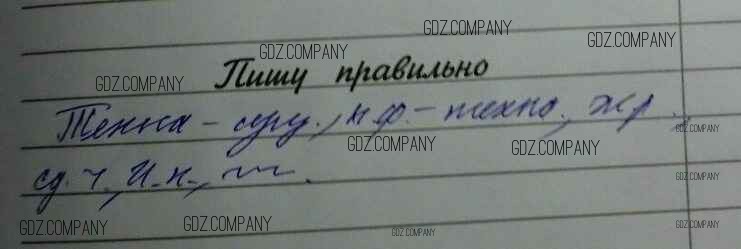 GDZ.COMPANY
GDZ.COMPANY
GDZ.COMPANY
GDZ.COMPANY
Пишу правильно
– сущ., н.ф. –
ж.р.,
GDZ.COMPANY
GDZ.COMPANY
GDZ.COMPANY
ед.ч., И.п.,
GDZ.COMPANY
GDZ.COMPANY
GDZ.COMPANY
GDZ.COMPANY
GDZ.COMPANY